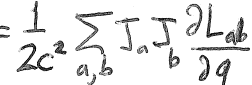 = \frac{1}{2c^2} \sum_{a,b} J_a J_b \frac{\partial L_{ab}}{\partial q}